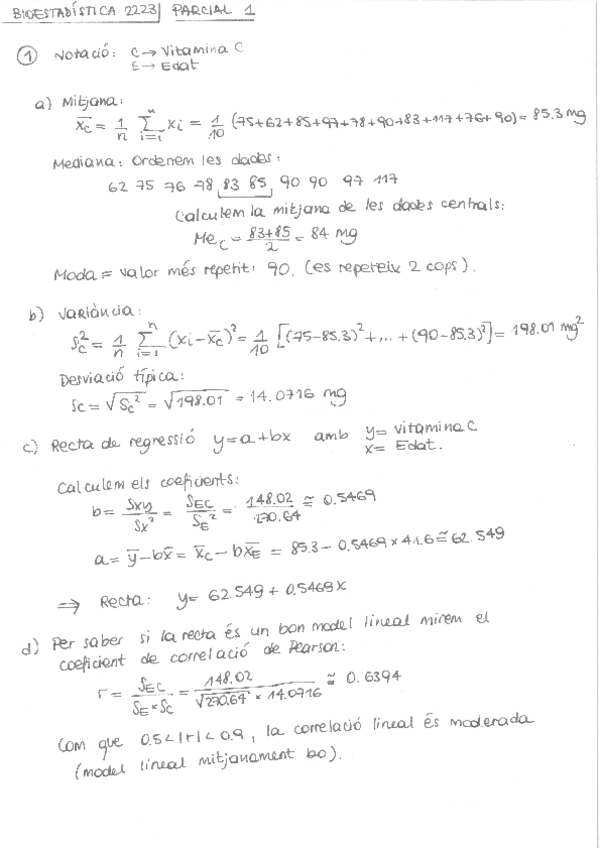 BIOESTADÍSTICA 2223 PARCIAL 1
① Notació: C → Vitamina C
E → Edat
a) Mitjana:
x̄_C = 1/n Σ_{i=1}^{n} xi = 1/10 (75+62+85+97+78+90+83+117+76+90) = 85.3 mg
Mediana: Ordenem les dades:
62 75 76 78 83 85 90 90 97 117
Calculem la mitjana de les dades centrals:
Me_C = (83+85)/2 = 84 mg
Moda = valor més repetit: 90. (es repeteix 2 cops).
b) Variància:
S_C² = 1/n Σ_{i=1}^{n} (xi - x̄_C)² = 1/10 [(75-85.3)² + ... + (90-85.3)²] = 198.01 mg²
Desviació típica:
S_C = √S_C² = √198.01 = 14.0716 mg
c) Recta de regressió y=a+bx amb y= vitamina C
x= Edat.
Calculem els coeficients:
b = Sxy/Sx² = S_EC/S_E² = 148.02/270.64 ≅ 0.5469
a = ȳ - bx̄ = x̄_C - bx̄_E = 85.3 - 0.5469 × 41.6 ≅ 62.549
⇒ Recta: y= 62.549 + 0.5469x
d) Per saber si la recta és un bon model lineal mirem el
coeficient de correlació de Pearson:
r = S_EC/(S_E × S_C) = 148.02/(√270.64 × 14.0716) ≅ 0.6394
Com que 0.5 < |r| < 0.9, la correlació lineal és moderada
(model lineal mitjanament bo).